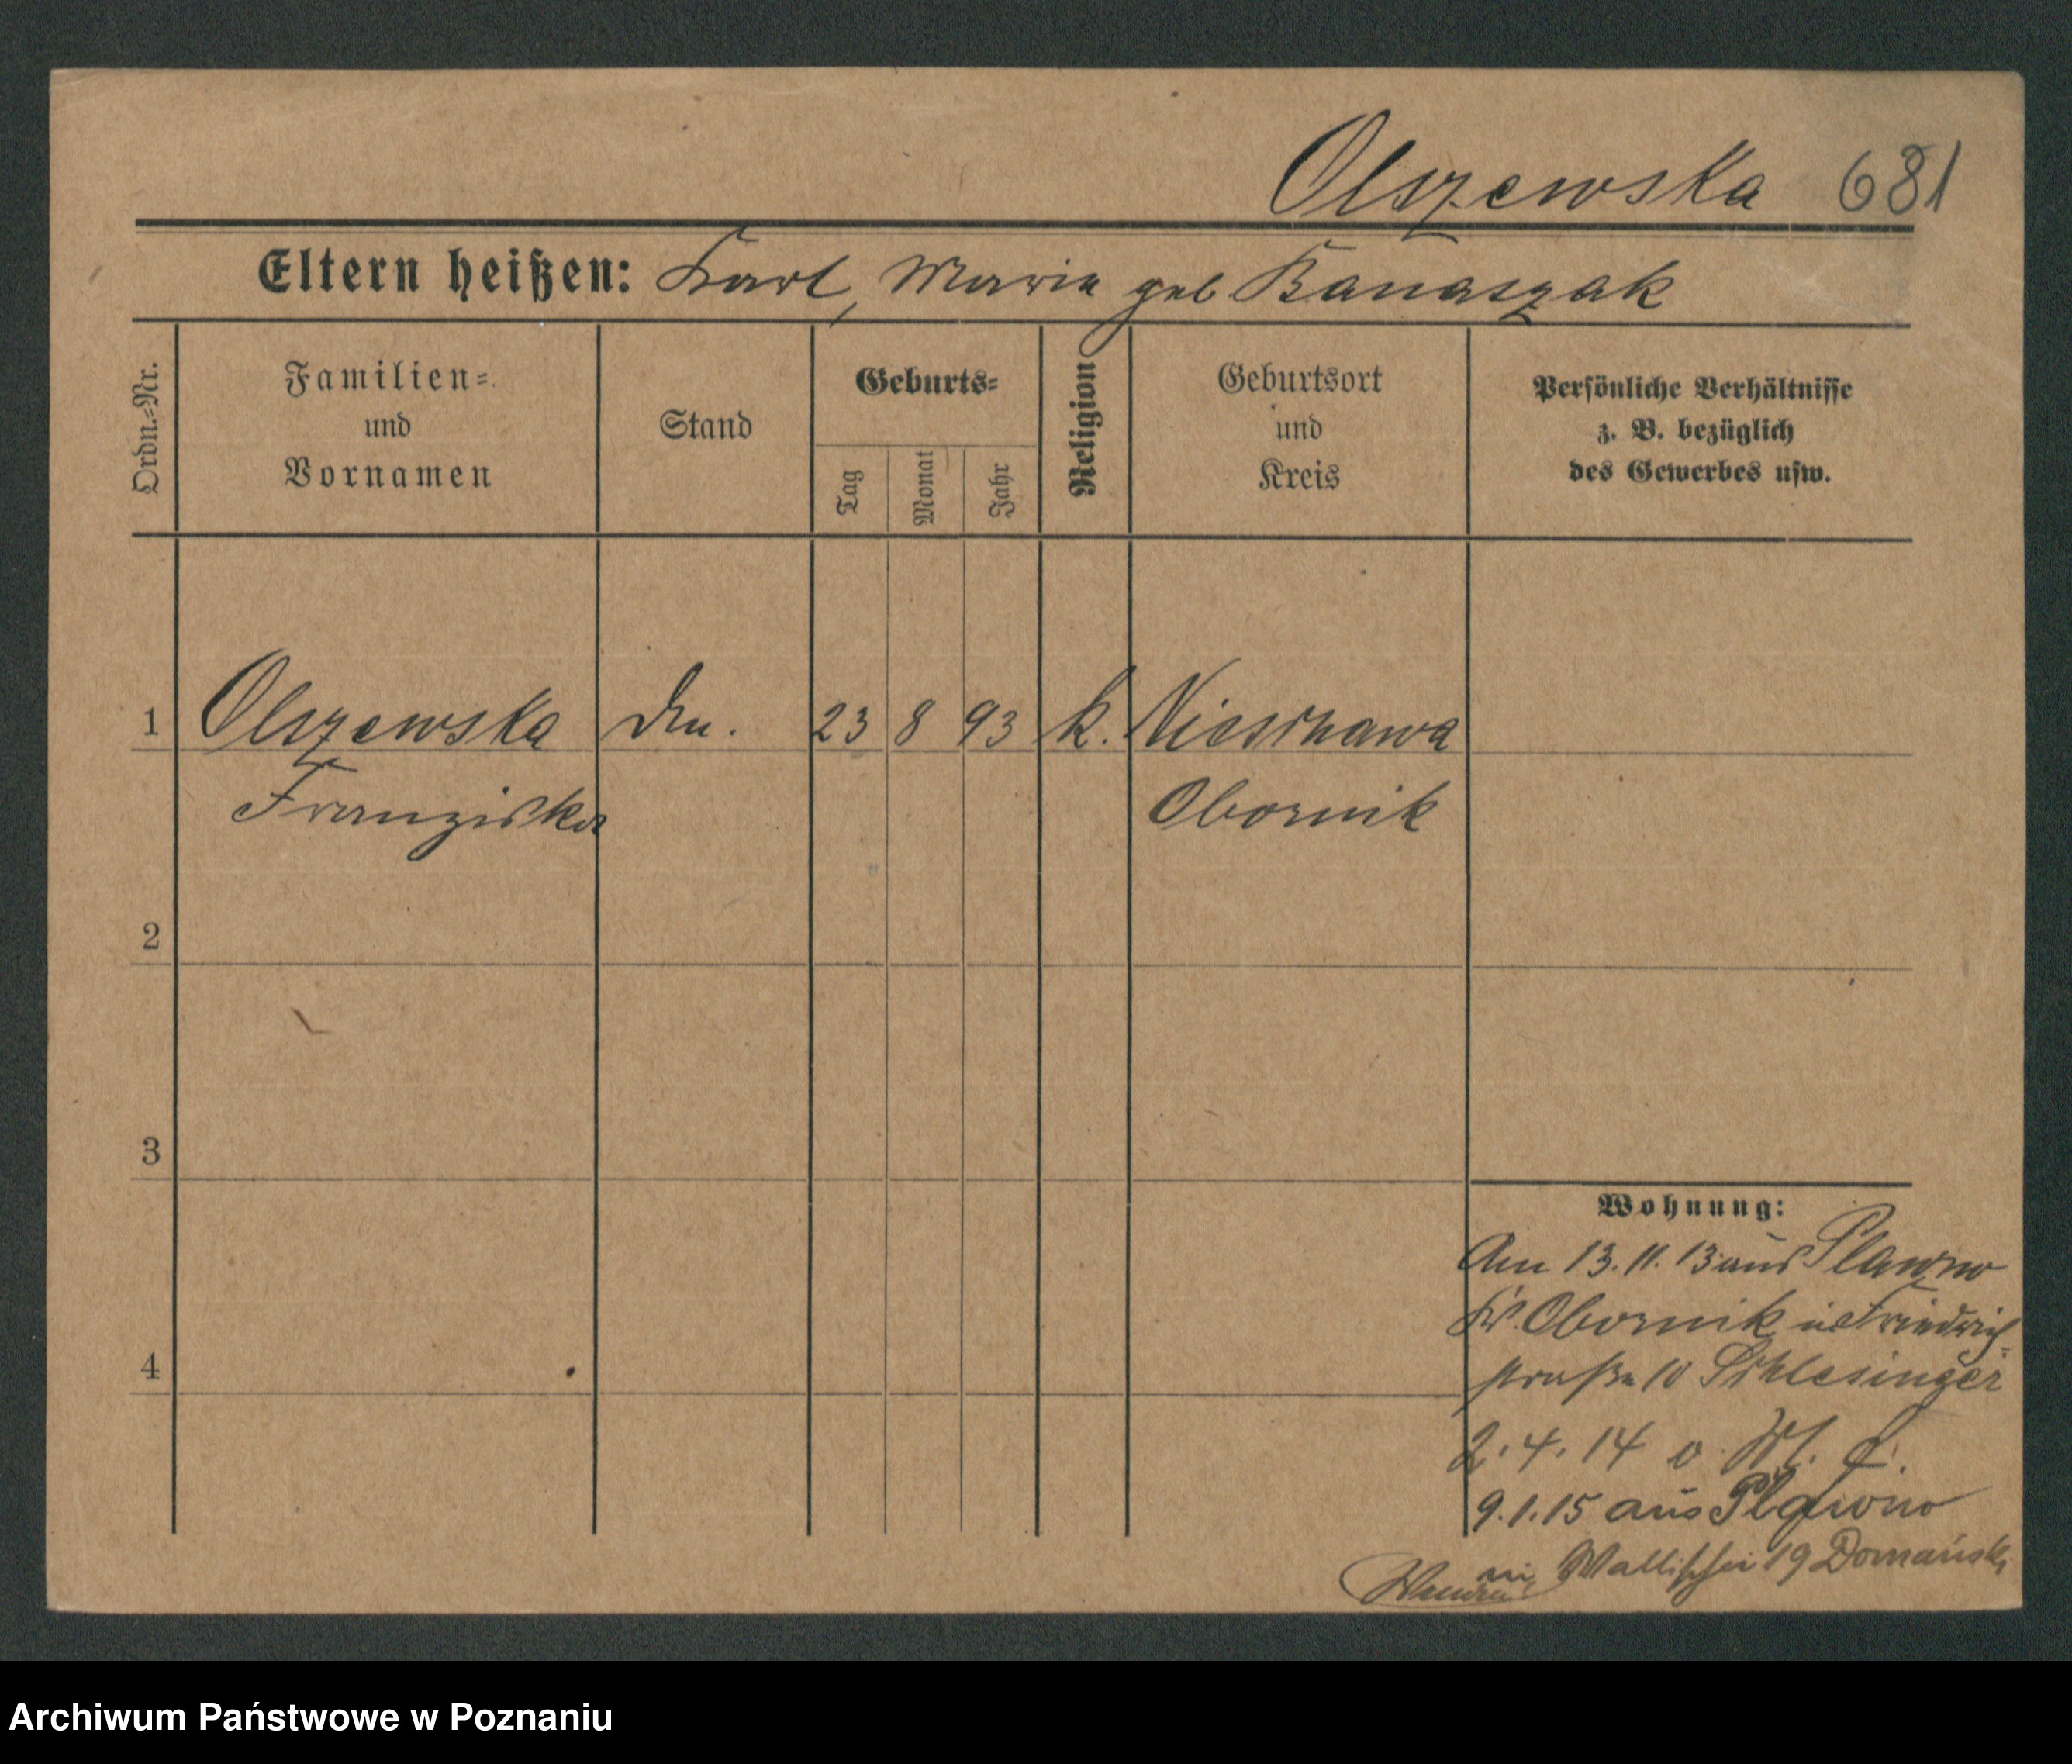 Olszewska 681
Eltern heißen: Karl, Marie geb Banaszak
Ordn.-Nr.
Familien- und Vornamen
Stand
Geburts-
Tag
Monat
Jahr
Religion
Geburtsort und Kreis
Persönliche Verhältnisse z. B. bezüglich des Gewerbes usw.
1 Olszewska 23 8 93 k. Nieschawa
Franziska Obornik
2
3
4
Wohnung:
Am 13.11.13 aus
Kr. Obornik in Friedrich-
straße 10 Schlesinger
2.4.14
9.1.15 aus
in Wallischei 19 Domański
Archiwum Państwowe w Poznaniu